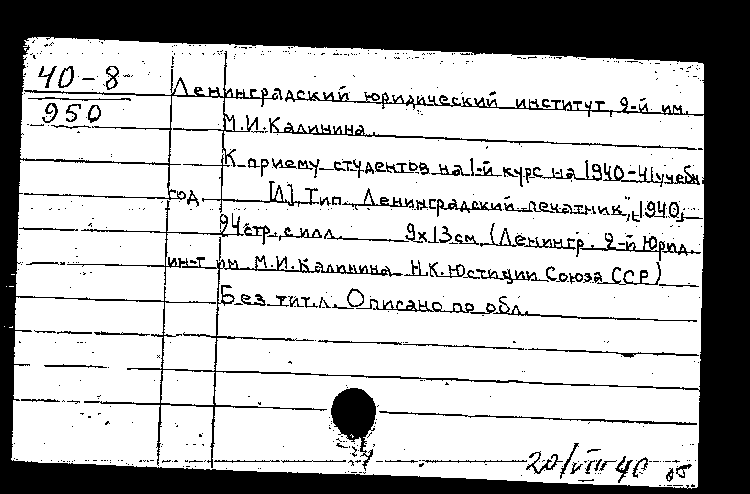 40-8
950
Ленинградский юридический институт, 2-й им.
М.И.Калинина.
К приему студентов на 1-й курс на 1940-41 учебн.
год. [Л], Тип. "Ленинградский печатник", [1940,
24 стр., с илл. 9х13 см. (Ленингр. 2-й Юрид.
ин-т им. М.И.Калинина Н.К.Юстиции Союза ССР)
Без тит.л. Описано по обл.
20/VIII 40